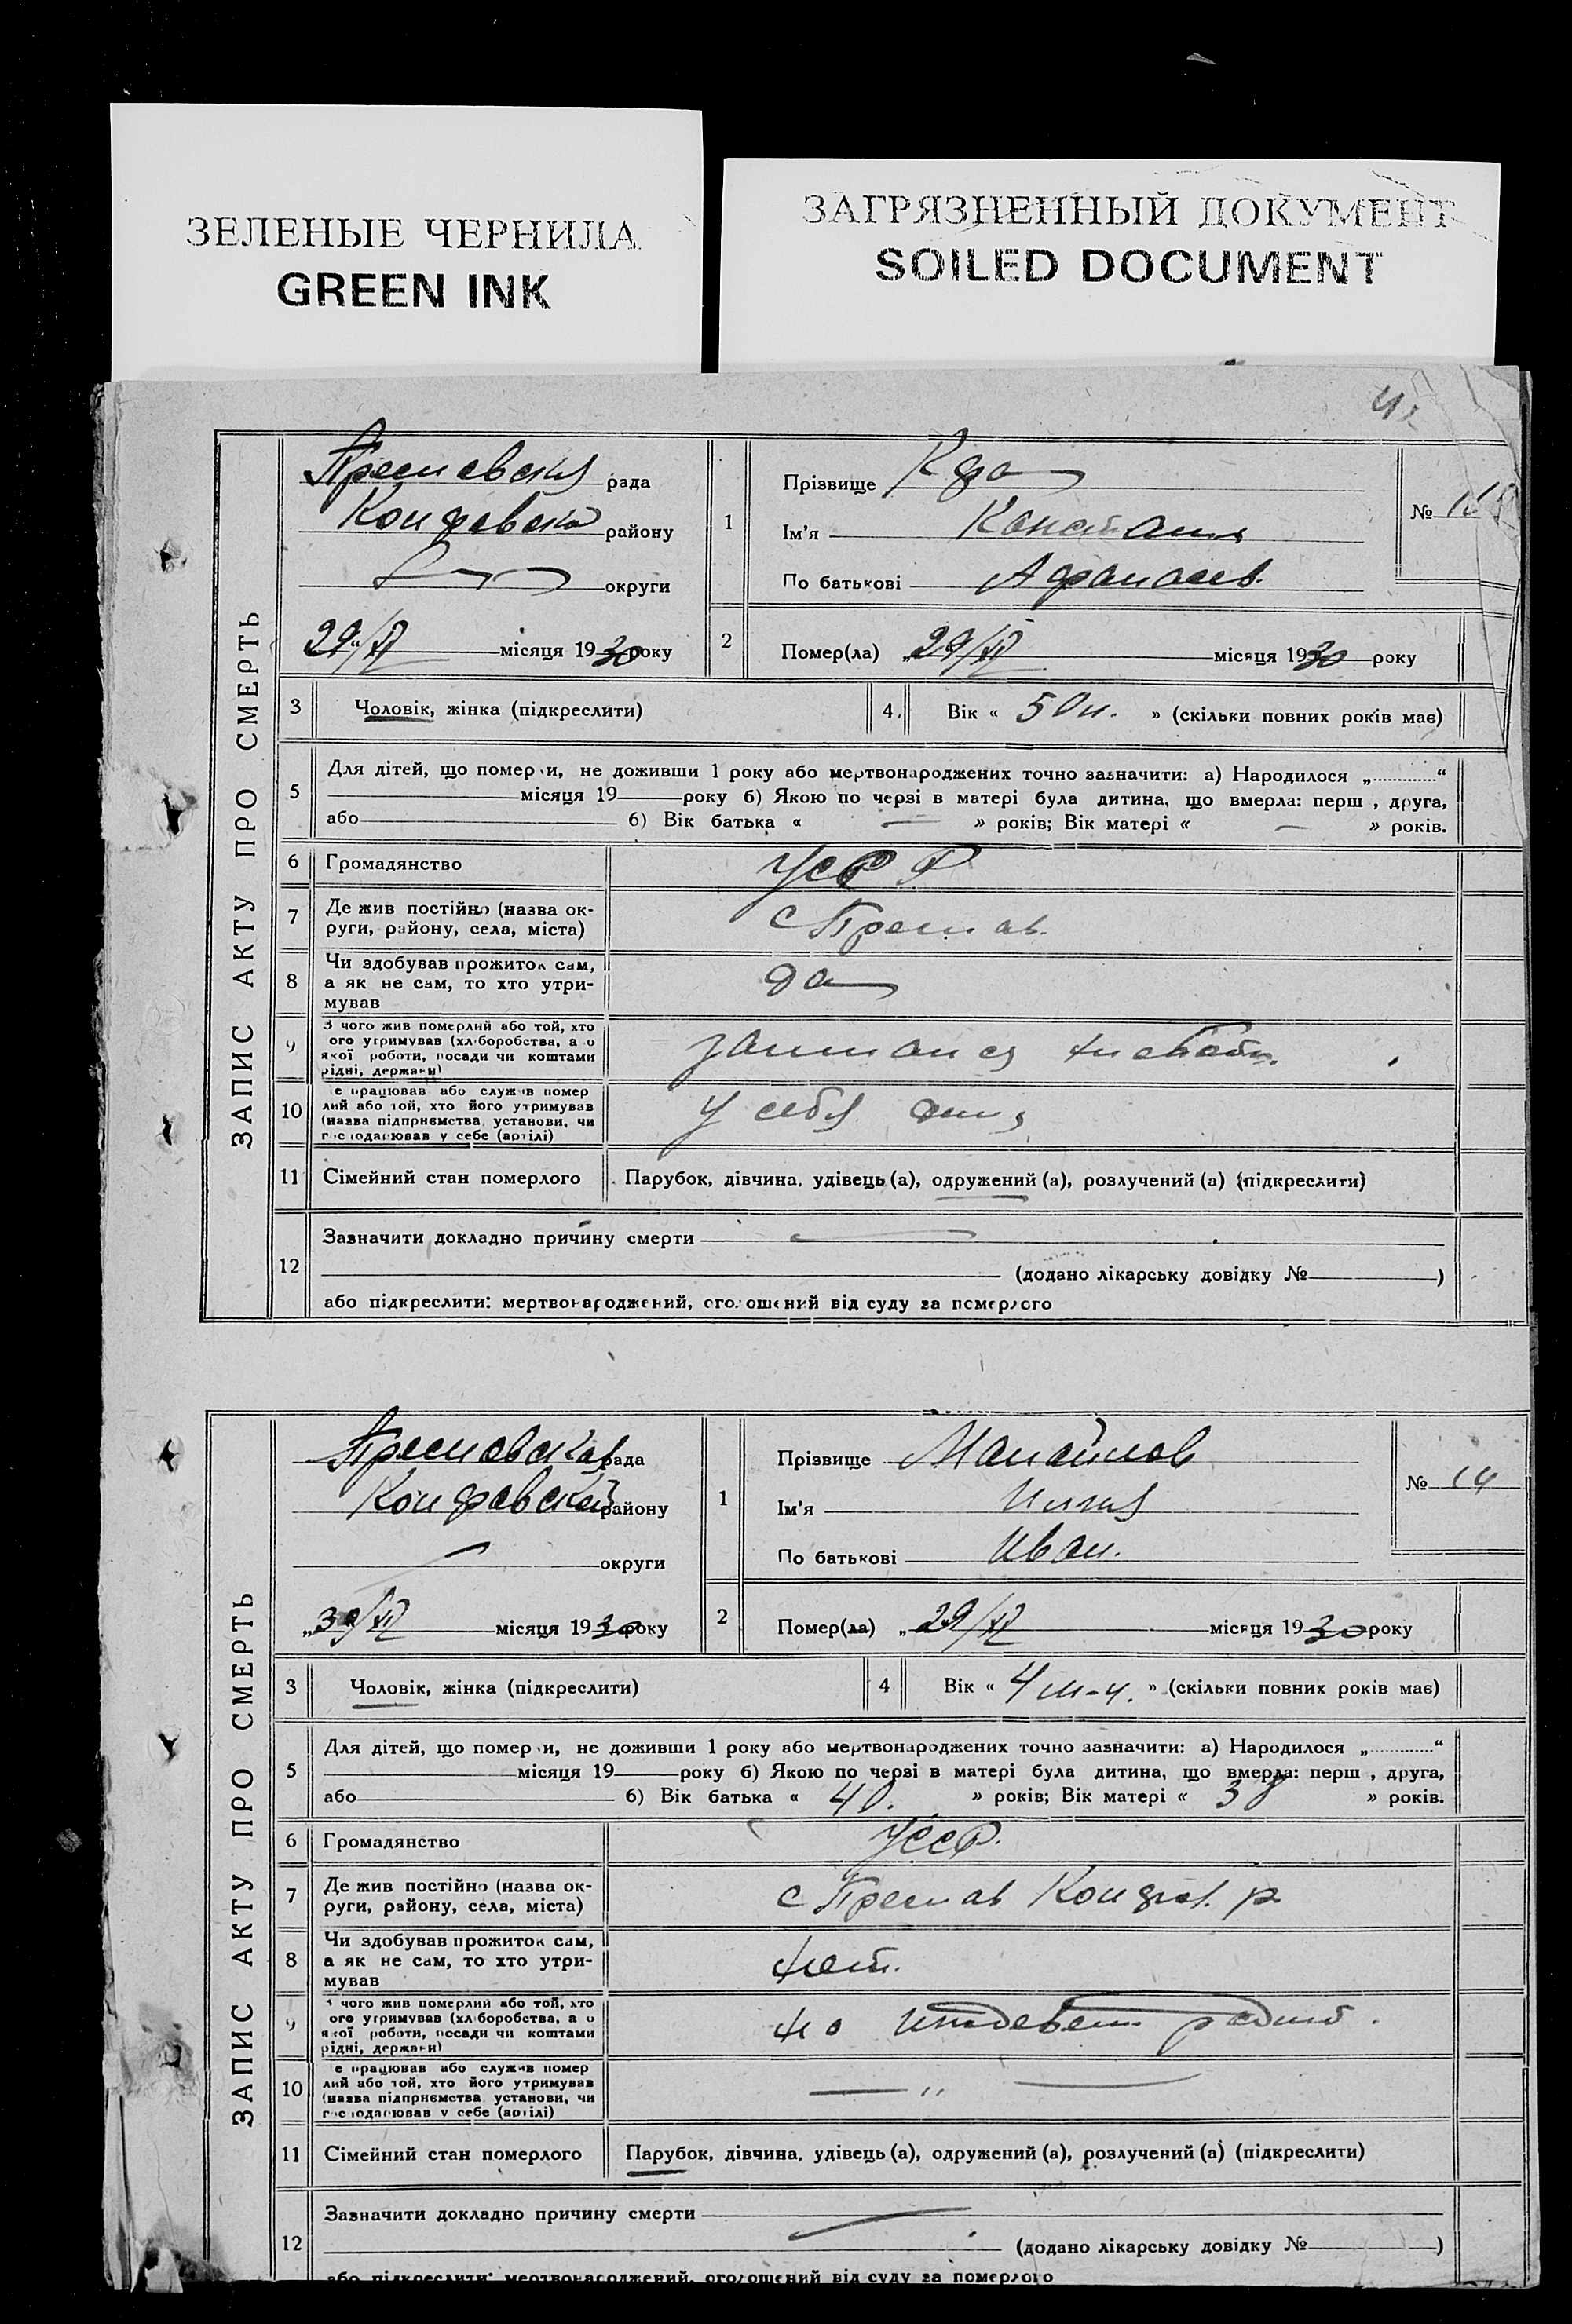 ЗЕЛЕНЫЕ ЧЕРНИЛА
GREEN INK
ЗАГРЯЗНЕННЫЙ ДОКУМЕНТ
SOILED DOCUMENT
ЗАПИС АКТУ ПРО СМЕРТЬ
рада
району
округи
29/XII місяця 1930 року
1
Прізвище
Ім'я
По батькові Афанасев.
№
2
Помер(ла) „29/XII місяця 1930 року
3 Чоловік, жінка (підкреслити)
4. Вік « 50 » (скільки повних років має)
5
Для дітей, що померли, не доживши 1 року або мертвонароджених точно зазначити: а) Народилося „ “
місяця 19 року б) Якою по черзі в матері була дитина, що вмерла: перш , друга,
або б) Вік батька « — » років; Вік матері « — » років.
6 Громадянство УССР
7 Де жив постійно (назва ок-
руги, району, села, міста)
с Преслав.
8 Чи здобував прожиток сам,
а як не сам, то хто утри-
мував
да
9 З чого жив померлий або той, хто
ого утримував (хліборобства, а о
якої роботи, посади чи коштами
рідні, держави)
10 е працював або служив помер
лий або той, хто його утримував
(назва підприємства, установи, чи
господарював у себе (артілі)
у себя
11 Сімейний стан померлого Парубок, дівчина, удівець (а), одружений (а), розлучений (а) (підкреслити)
12
Зазначити докладно причину смерти —
(додано лікарську довідку № )
або підкреслити: мертвонароджений, оголошений від суду за померлого
ЗАПИС АКТУ ПРО СМЕРТЬ
рада
району
округи
„30/XII місяця 1930 року
1
Прізвище
Ім'я
По батькові Иван.
№ 14
2
Помер(ла) „29/XII місяця 1930 року
3 Чоловік, жінка (підкреслити)
4 Вік « 4 м-ц. » (скільки повних років має)
5
Для дітей, що померли, не доживши 1 року або мертвонароджених точно зазначити: а) Народилося „ “
місяця 19 року б) Якою по черзі в матері була дитина, що вмерла: перш , друга,
або б) Вік батька « 40. » років; Вік матері « 38 » років.
6 Громадянство УССР.
7 Де жив постійно (назва ок-
руги, району, села, міста)
с Преслав р
8 Чи здобував прожиток сам,
а як не сам, то хто утри-
мував
нет.
9 чого жив померлий або той, хто
ого утримував (хліборобства, а о
якої роботи, посади чи коштами
рідні, держави)
на иждевен
10 е працював або служив помер
лий або той, хто його утримував
(назва підприємства, установи, чи
господарював у себе (артілі)
— „ —
11 Сімейний стан померлого Парубок, дівчина, удівець (а), одружений (а), розлучений (а) (підкреслити)
12
Зазначити докладно причину смерти —
(додано лікарську довідку № )
або підкреслити: мертвонароджений, оголошений від суду за померлого